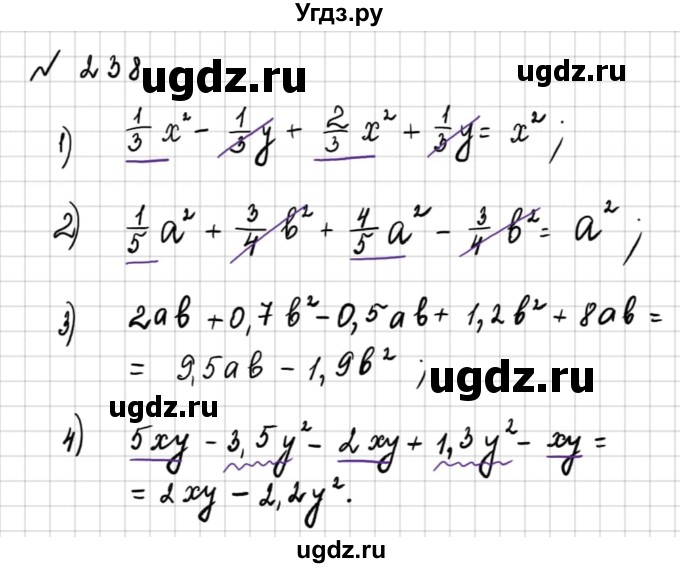 Угдз.ру
№ 238
ugdz.ru ugdz.ru
1) 1/3 x² - 1/3 y + 2/3 x² + 1/3 y = x² ;
2) 1/5 a² + 3/4 b² + 4/5 a² - 3/4 b² = a² ;
3) 2ab + 0,7b² - 0,5ab + 1,2b² + 8ab =
= 9,5ab - 1,9b² ;
ugdz.ru
ugdz.ru
4) 5xy - 3,5y² - 2xy + 1,3y² - xy =
= 2xy - 2,2y².
ugdz.ru